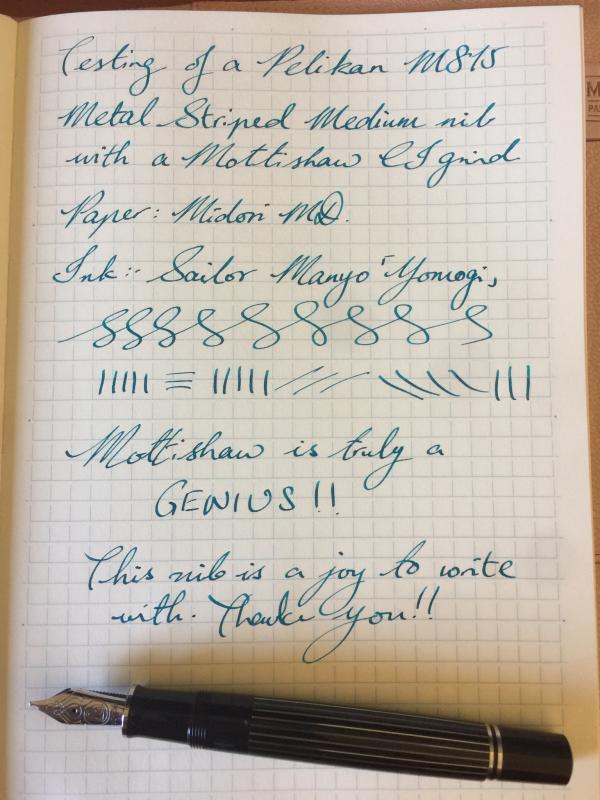 Testing of a Pelikan M815
Metal Striped Medium nib
with a Mottishaw CI grind
Paper: Midori MD.
Ink:- Sailor Manyo 「Yomogi」
Mottishaw is truly a
GENIUS!!
This nib is a joy to write
with. Thank you!!